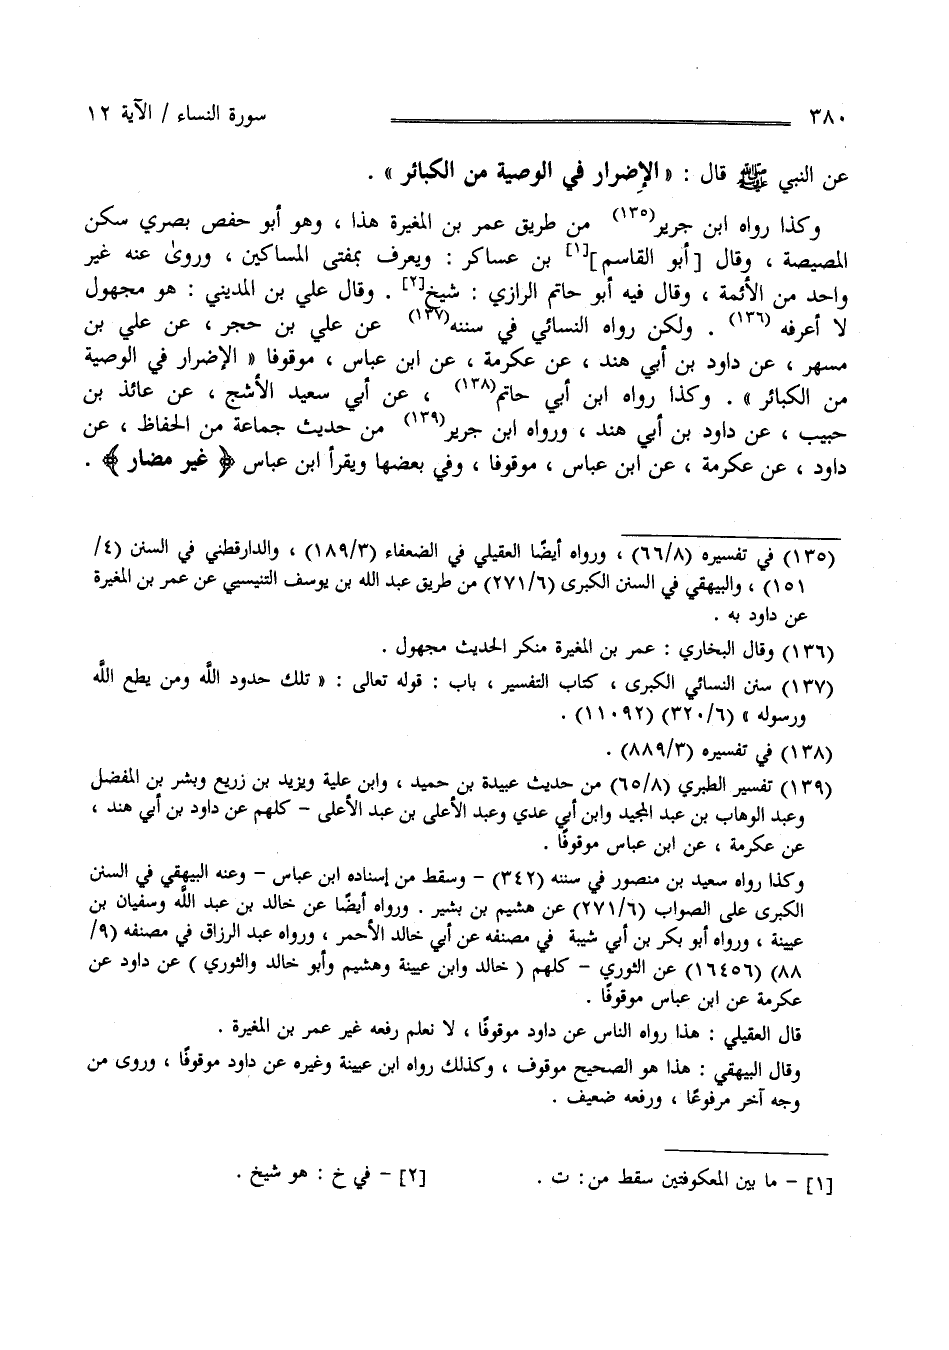 ٣٨٠ سورة النساء / الآية ١٢
عن النبي ﷺ قال : « الإضرار في الوصية من الكبائر » .
وكذا رواه ابن جرير(١٣٥) من طريق عمر بن المغيرة هذا ، وهو أبو حفص بصري سكن
المصيصة ، وقال [أبو القاسم][١] بن عساكر : ويعرف بمفتى المساكين ، وروىٰ عنه غير
واحد من الأئمة ، وقال فيه أبو حاتم الرازي : شيخ[٢] . وقال علي بن المديني : هو مجهول
لا أعرفه (١٣٦) . ولكن رواه النسائي في سننه(١٣٧) عن علي بن حجر ، عن علي بن
مسهر ، عن داود بن أبي هند ، عن عكرمة ، عن ابن عباس ، موقوفا « الإضرار في الوصية
من الكبائر » . وكذا رواه ابن أبي حاتم(١٣٨) ، عن أبي سعيد الأشج ، عن عائذ بن
حبيب ، عن داود بن أبي هند ، ورواه ابن جرير(١٣٩) من حديث جماعة من الحفاظ ، عن
داود ، عن عكرمة ، عن ابن عباس ، موقوفا ، وفي بعضها ويقرأ ابن عباس ﴿ غير مضار ﴾ .
(١٣٥) في تفسيره (٦٦/٨) ، ورواه أيضًا العقيلي في الضعفاء (١٨٩/٣) ، والدارقطني في السنن (٤/
١٥١) ، والبيهقي في السنن الكبرى (٢٧١/٦) من طريق عبد الله بن يوسف التنيسيي عن عمر بن المغيرة
عن داود به .
(١٣٦) وقال البخاري : عمر بن المغيرة منكر الحديث مجهول .
(١٣٧) سنن النسائي الكبرى ، كتاب التفسير ، باب : قوله تعالى : « تلك حدود اللَّه ومن يطع اللَّه
ورسوله » (٣٢٠/٦) (١١٠٩٢) .
(١٣٨) في تفسيره (٨٨٩/٣) .
(١٣٩) تفسير الطبري (٦٥/٨) من حديث عبيدة بن حميد ، وابن علية ويزيد بن زريع وبشر بن المفضل
وعبد الوهاب بن عبد المجيد وابن أبي عدي وعبد الأعلى بن عبد الأعلى – كلهم عن داود بن أبي هند ،
عن عكرمة ، عن ابن عباس موقوفًا .
وكذا رواه سعيد بن منصور في سننه (٣٤٢) – وسقط من إسناده ابن عباس – وعنه البيهقي في السنن
الكبرى على الصواب (٢٧١/٦) عن هشيم بن بشير . ورواه أيضًا عن خالد بن عبد اللَّه وسفيان بن
عيينة ، ورواه أبو بكر بن أبي شيبة في مصنفه عن أبي خالد الأحمر ، ورواه عبد الرزاق في مصنفه (٩/
٨٨) (١٦٤٥٦) عن الثوري – كلهم ( خالد وابن عيينة وهشيم وأبو خالد والثوري ) عن داود عن
عكرمة عن ابن عباس موقوفًا .
قال العقيلي : هذا رواه الناس عن داود موقوفًا ، لا نعلم رفعه غير عمر بن المغيرة .
وقال البيهقي : هذا هو الصحيح موقوف ، وكذلك رواه ابن عيينة وغيره عن داود موقوفًا ، وروى من
وجه آخر مرفوعًا ، ورفعه ضعيف .
[١] – ما بين المعكوفتين سقط من: ت . [٢] – في خ : هو شيخ .